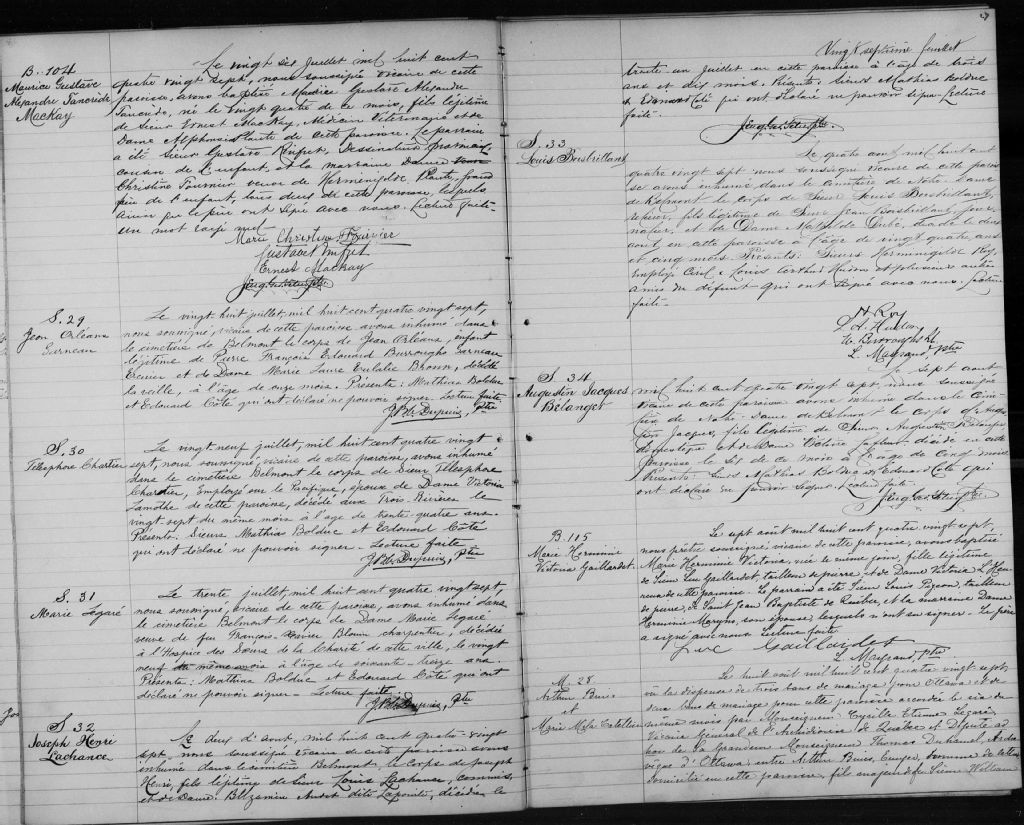 B. 104
Maurice Gustave
Alexandre Tancrède
Mackay
Le vingt six Juillet mil huit cent
quatre vingt sept, nous soussigné vicaire de cette
paroisse, avons baptisé Maurice Gustave Alexandre
Tancrède, né le vingt quatre de ce mois, fils légitime
de Sieur Ernest Mackay, Médecin Vétérinaire et de
Dame Alphonsine Plante de cette paroisse. Le parrain
a été Sieur Gustave Rinfret, Dessinateur
cousin de l'enfant, et la marraine Dame
Christine Fournier veuve de Herménégilde Plante, grand
mère de l'enfant, tous deux de cette paroisse, lesquels
ainsi que le père ont signé avec nous. Lecture faite.
Un mot rayé nul
Marie Christine Fournier
Gustave Rinfret
Ernest Mackay
S. 29
Jean Orléans
Garneau
Le vingt-huit juillet, mil huit cent quatre vingt sept,
nous soussigné, vicaire de cette paroisse avons inhumé dans
le cimetière de Belmont le corps de Jean Orléans, enfant
légitime de Pierre François Edouard Burroughs Garneau
Epicier et de Dame Marie Laure Eulalie Brown, décédé
la veille, à l'âge de onze mois. Présents: Mathias Bolduc
et Edouard Côté qui ont déclaré ne pouvoir signer. Lecture faite
J. B. W. Dupuis, Ptre
S. 30
Télesphore Chartier
Le vingt-neuf juillet, mil huit cent quatre vingt
sept, nous soussigné, vicaire de cette paroisse, avons inhumé
dans le cimetière Belmont le corps de Sieur Télesphore
Chartier, Employé sur le Pacifique, époux de Dame Victoria
Lamothe de cette paroisse, décédé aux Trois-Rivières le
vingt-sept du même mois à l'âge de trente-quatre ans.
Présents: Sieurs Mathias Bolduc et Edouard Côté
qui ont déclaré ne pouvoir signer - Lecture faite
J. B. W. Dupuis, Ptre
S. 31
Marie Légaré
Le trente juillet, mil huit cent quatre vingt sept,
nous soussigné, vicaire de cette paroisse, avons inhumé dans
le cimetière Belmont le corps de Dame Marie Légaré
veuve de feu François-Xavier Blouin charpentier, décédée
à l'Hospice des Sœurs de la Charité de cette ville, le vingt
neuf du même mois à l'âge de soixante-treize ans.
Présents: Mathias Bolduc et Edouard Côté qui ont
déclaré ne pouvoir signer - Lecture faite
J. B. W. Dupuis, Ptre
S. 32
Joseph Henri
Lachance
Le deux d'Aout, mil huit cent quatre-vingt
sept nous soussigné vicaire de cette paroisse avons
inhumé dans le cimetière Belmont, le corps de Joseph
Henri, fils légitime de Sieur Louis Lachance, commis,
et de Dame Audet dite Lapointe, décédé le
Vingt septième feuillet
trente-un Juillet en cette paroisse à l'âge de trois
ans et dix mois. Présents: Sieurs Mathias Bolduc
& Edmond Coté qui ont déclaré ne pouvoir signer. Lecture
faite.
S. 33
Louis Boisbrillant
Le quatre aout mil huit cent
quatre vingt sept nous soussigné vicaire de cette parois
se avons inhumé dans le cimetière de Notre-Dame
de Belmont le corps de Sieur Louis Boisbrillant,
relieur, fils légitime de Sieur Jean Boisbrillant, jour
nalier, et de Dame Mathilde Dubé, décédé le deux
aout en cette paroisse à l'âge de vingt quatre ans
et cinq mois. Présents: Sieurs Herménégilde Roy,
Employé Civil & Louis Arthur Hudon et plusieurs autres
amis du défunt qui ont signé avec nous. Lecture
faite.
H. Roy
L. A. Hudon
L. Magnand, Ptre
S. 34
Augustin Jacques
Bélanger
Le Sept aout
mil huit cent quatre vingt sept, nous soussigné
vicaire de cette paroisse avons inhumé dans le cime
tière de Notre-Dame de Belmont le corps d'Augus
tin Jacques, fils légitime de Sieur Augustin Bélanger
domestique et de Dame Victoire décédé en cette
paroisse le six de ce mois à l'âge de cinq mois
Présents: Sieurs Mathias Bolduc & Edouard Coté qui
ont déclaré ne pouvoir signer. Lecture faite.
B. 115
Marie Herminie
Victoria Gaillardet
Le sept août mil huit cent quatre vingt sept,
nous prêtre soussigné, vicaire de cette paroisse, avons baptisé
Marie Herminie Victoria, née le cinq courant, fille légitime
de Sieur Luc Gaillardet, tailleur de pierre et de Dame Victoria L'Heu
reux de cette paroisse. Le parrain a été Sieur Louis Pigeon, tailleur
de pierre, de Saint Jean Baptiste de Québec, et la marraine Dame
Herminie son épouse, lesquels n'ont su signer. Le père
a signé avec nous. Lecture faite
Luc Gaillardet
L. Magnand, Ptre
M. 28
Arthur Buies
et
Marie Mila Catellier
Le huit août mil huit cent quatre vingt sept,
vu la dispense de trois bans de mariage pour Ottawa et de
deux bans de mariage pour cette paroisse accordée le six du
même mois par Monseigneur Cyrille Etienne Légaré
Vicaire Général de l'Archidiocèse de Québec et Député ad
hoc de Sa Grandeur Monseigneur Thomas Duhamel, Arche
vêque d'Ottawa, entre Arthur Buies, Ecuyer, homme de lettres
domicilié en cette paroisse, fils majeur de Sieur William